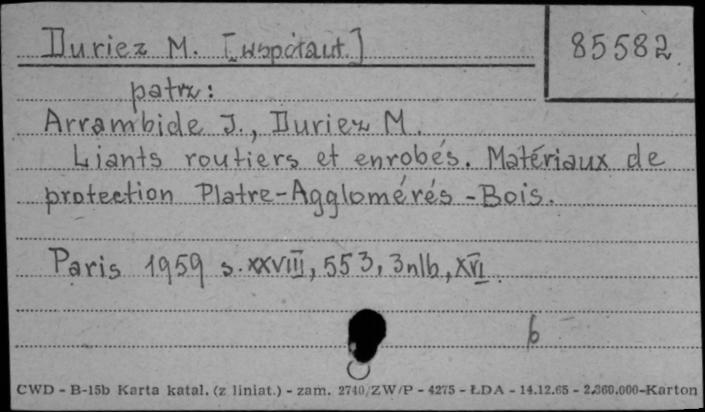 Duriez M. [współaut.]
85582
patrz:
Arrambide J., Duriez M.
Liants routiers et enrobés. Matériaux de
protection Platre-Agglomérés-Bois.
Paris 1959 s. XXVIII, 553, 3nlb., XVI.
b
CWD - B-15b Karta katal. (z liniat.) - zam. 2740/ZW/P - 4275 - ŁDA - 14.12.65 - 2.360.000-Karton